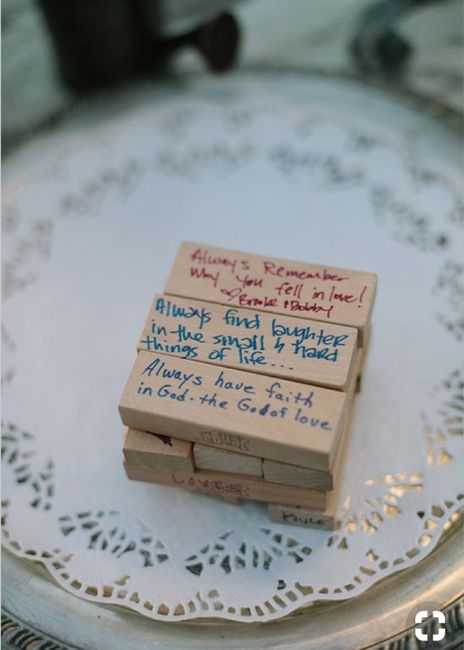 Always Remember
Why You fell in love!
Brooke + Bobby
Always find laughter
in the small & hard
things of life...
Always have faith
in God - the God of love
Jenga